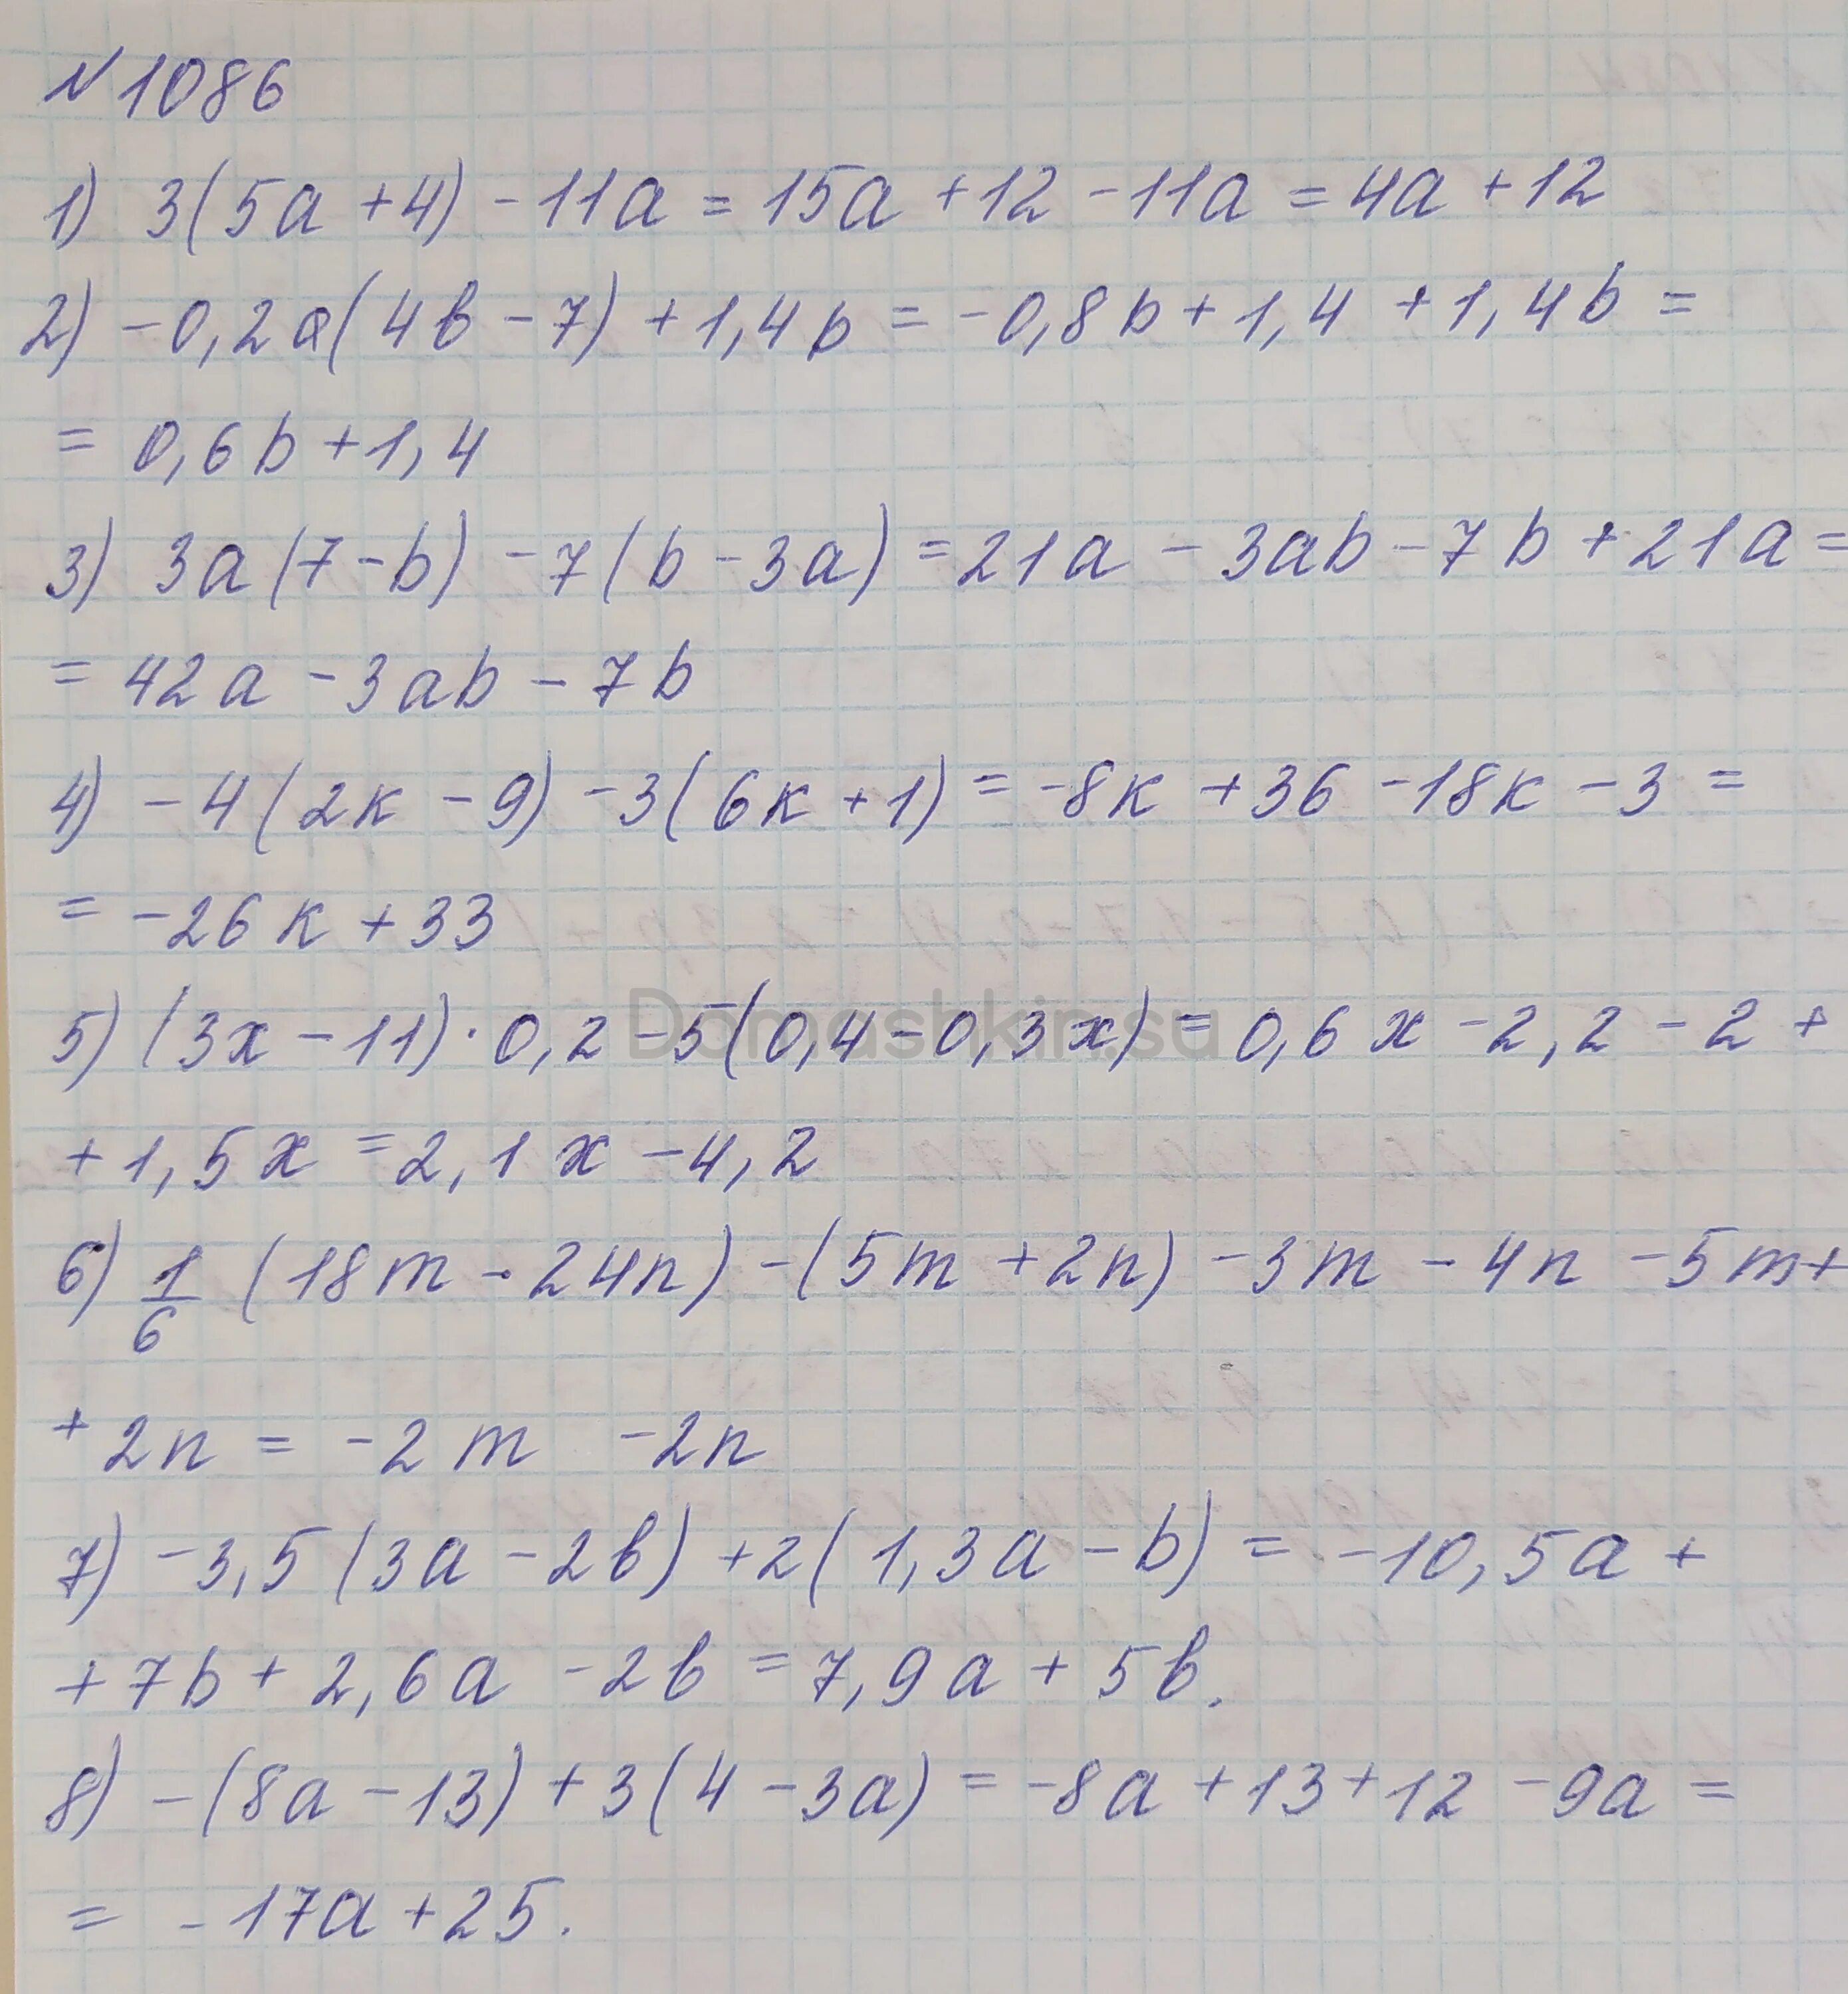 №1086
1) 3(5a+4)-11a=15a+12-11a=4a+12
2) -0,2a(4b-7)+1,4b=-0,8b+1,4+1,4b=
=0,6b+1,4
3) 3a(7-b)-7(b-3a)=21a-3ab-7b+21a=
=42a-3ab-7b
4) -4(2к-9)-3(6к+1)=-8к+36-18к-3=
=-26к+33
5) (3x-11)·0,2-5(0,4-0,3x)=0,6x-2,2-2+
Domashkin.su
+1,5x=2,1x-4,2
6) 1/6 (18m-24n)-(5m+2n)-3m-4n-5m+
+2n=-2m -2n
7) -3,5(3a-2b)+2(1,3a-b)=-10,5a+
+7b+2,6a-2b=7,9a+5b.
8) -(8a-13)+3(4-3a)=-8a+13+12-9a=
=-17a+25.